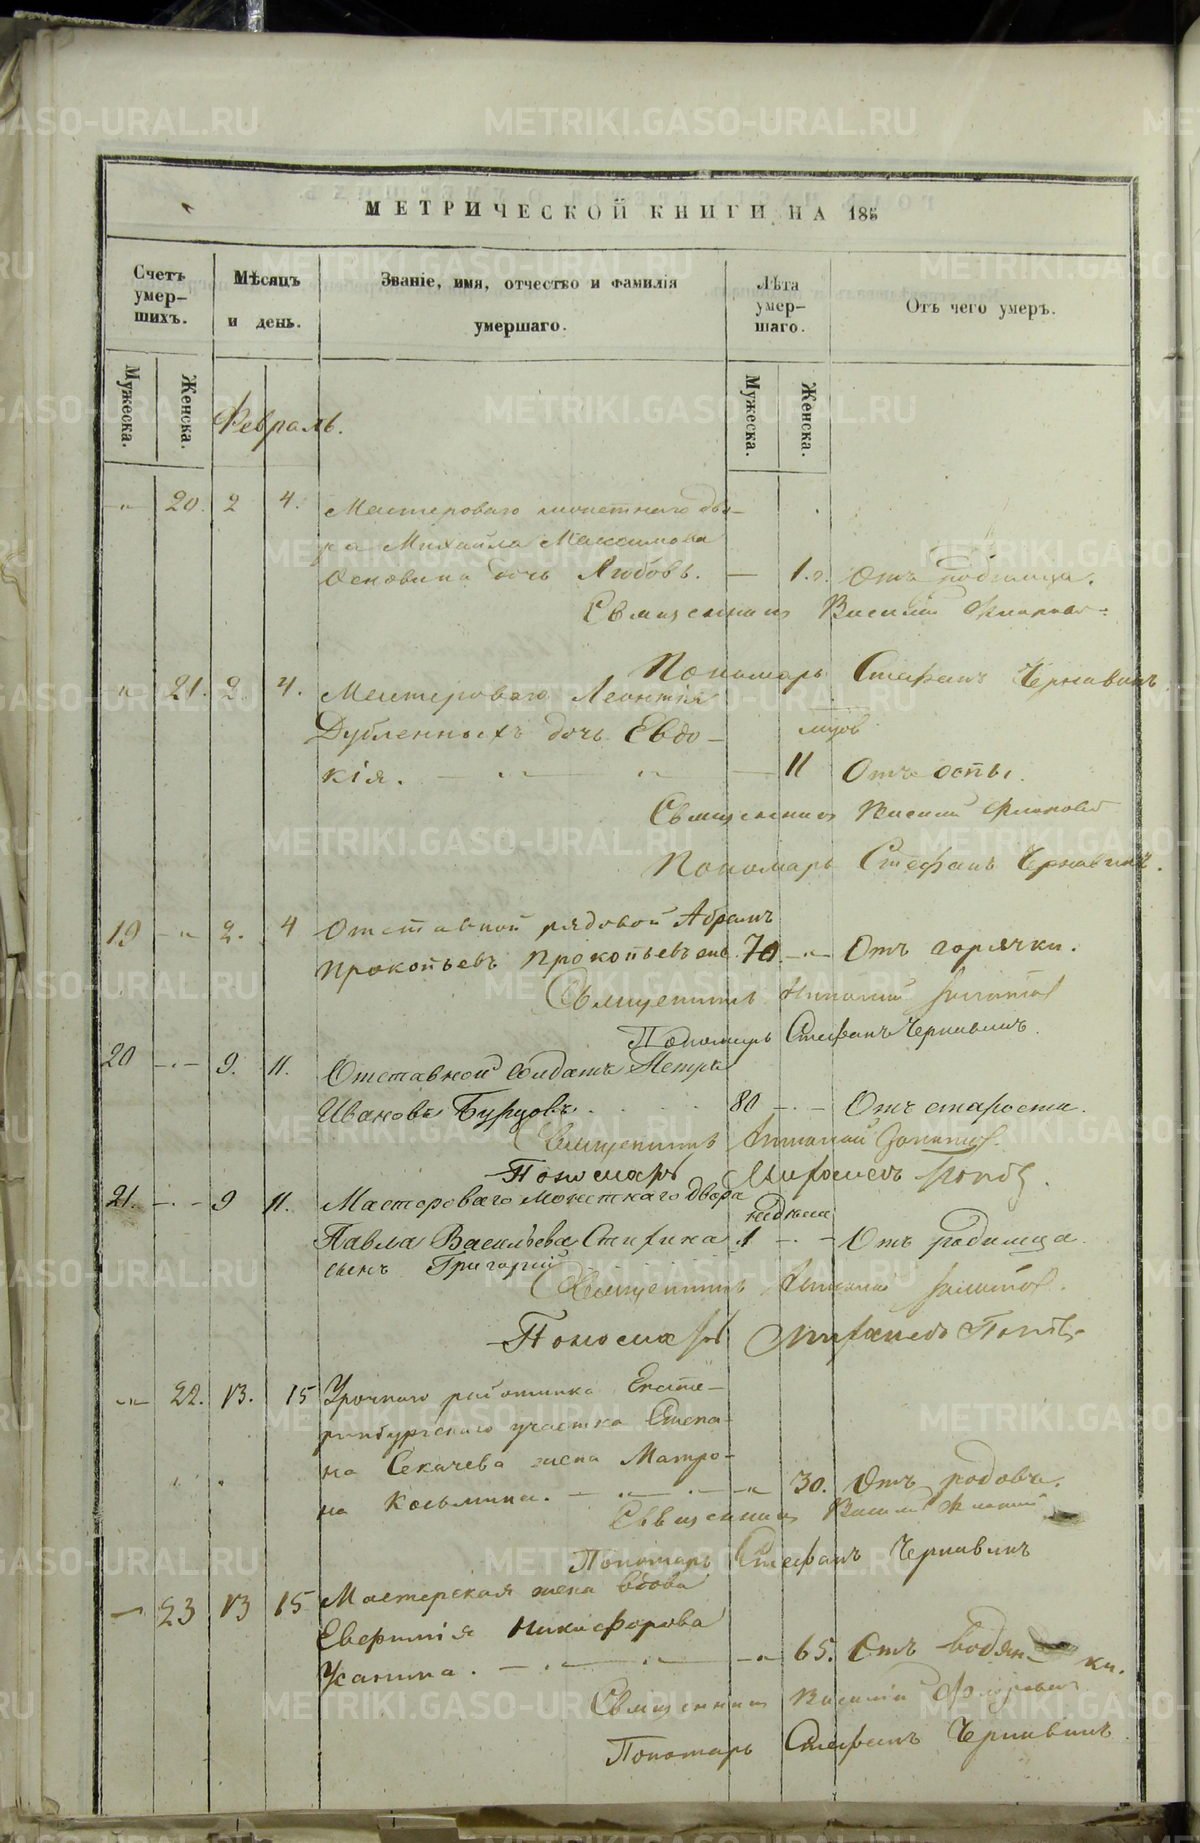 МЕТРИЧЕСКОЙ КНИГИ НА 185
Счетъ умер-шихъ.
Мѣсяцъ и день.
Званіе, имя, отчество и фамилія умершаго.
Лѣта умер-шаго.
Отъ чего умеръ.
Мужеска.
Женска.
Мужеска.
Женска.
Февраль.
„ 20. 2 4. Мастероваго монетнаго дво-
ра Михаила Максимова
дочь Любовь. — 1. Отъ родимца.
Священникъ Василій
Пономарь Стефанъ Чернавинъ.
„ 21. 2. 4. Мастероваго Леонтія
Дубленныхъ дочь Евдо-
кія. — „ — „ — 11 Отъ оспы.
Священникъ Василій
Пономарь Стефанъ Чернавинъ.
19 — „ 2. 4 Отставной рядовой Абрамъ
Прокопьевъ Прокопьевъ 70. — „ — Отъ горячки.
Священникъ
Пономарь Стефанъ Чернавинъ.
20 — . — 9. 11. Отставной солдатъ Петръ
Ивановъ Бурцовъ. 80 — . — Отъ старости.
Священникъ
Пономарь Попов
21. — . — 9 11. Мастероваго Монетнаго двора
недѣли
Павла Васильева 1 — . — Отъ родимца.
сынъ Григорій
Священникъ
Пономарь Попов
— „ — 22. 13. 15 Урочнаго работника Екате-
ринбургскаго участка Степа-
на Секачева жена Матро-
на Козьмина. — „ — . — „ 30. Отъ родовъ.
Священникъ Василій
Пономарь Стефанъ Чернавинъ
— 23 13 15 Мастерская жена вдова
Евфимія Никифорова
Усанина. — . — „ — „ 65. Отъ водян- ки.
Священникъ Василій
Пономарь Стефанъ Чернавинъ
METRIKI.GASO-URAL.RU